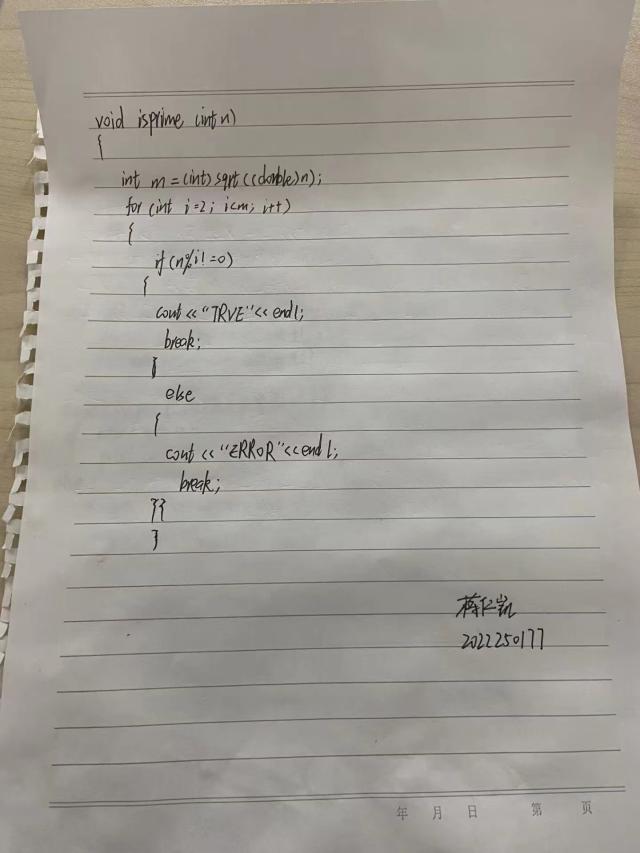 void isprime (int n)
{
int m = (int) sqrt((double)n);
for (int i=2; i<m; i++)
{
if (n%i!=0)
{
cout << "TRVE" << endl;
break;
}
else
{
cout << "ERROR" << endl;
break;
}}
}
蒋仁凯
2022250177
年 月 日 第 页